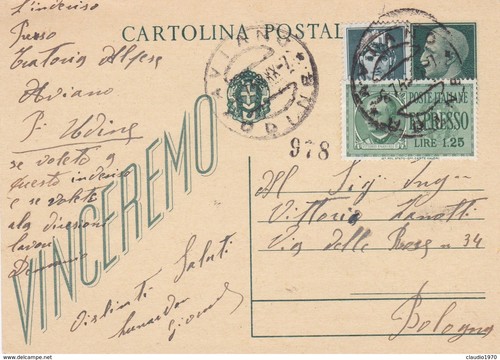 L'indirizzo
Presso
Trattoria Alpese
Aviano
P. Udine
se volete a
questo indirizzo
e se volete
alla direzione
lavori
Demanio
CARTOLINA POSTALE
AVIANO
UDINE
978
POSTE ITALIANE
ESPRESSO
LIRE 1.25
VINCEREMO
Al Sig. Ing.
Vittorio Zanotti
Via delle Rose n 34
Bologna
Distinti Saluti
Lunardon
delcampe.net
claudio1970